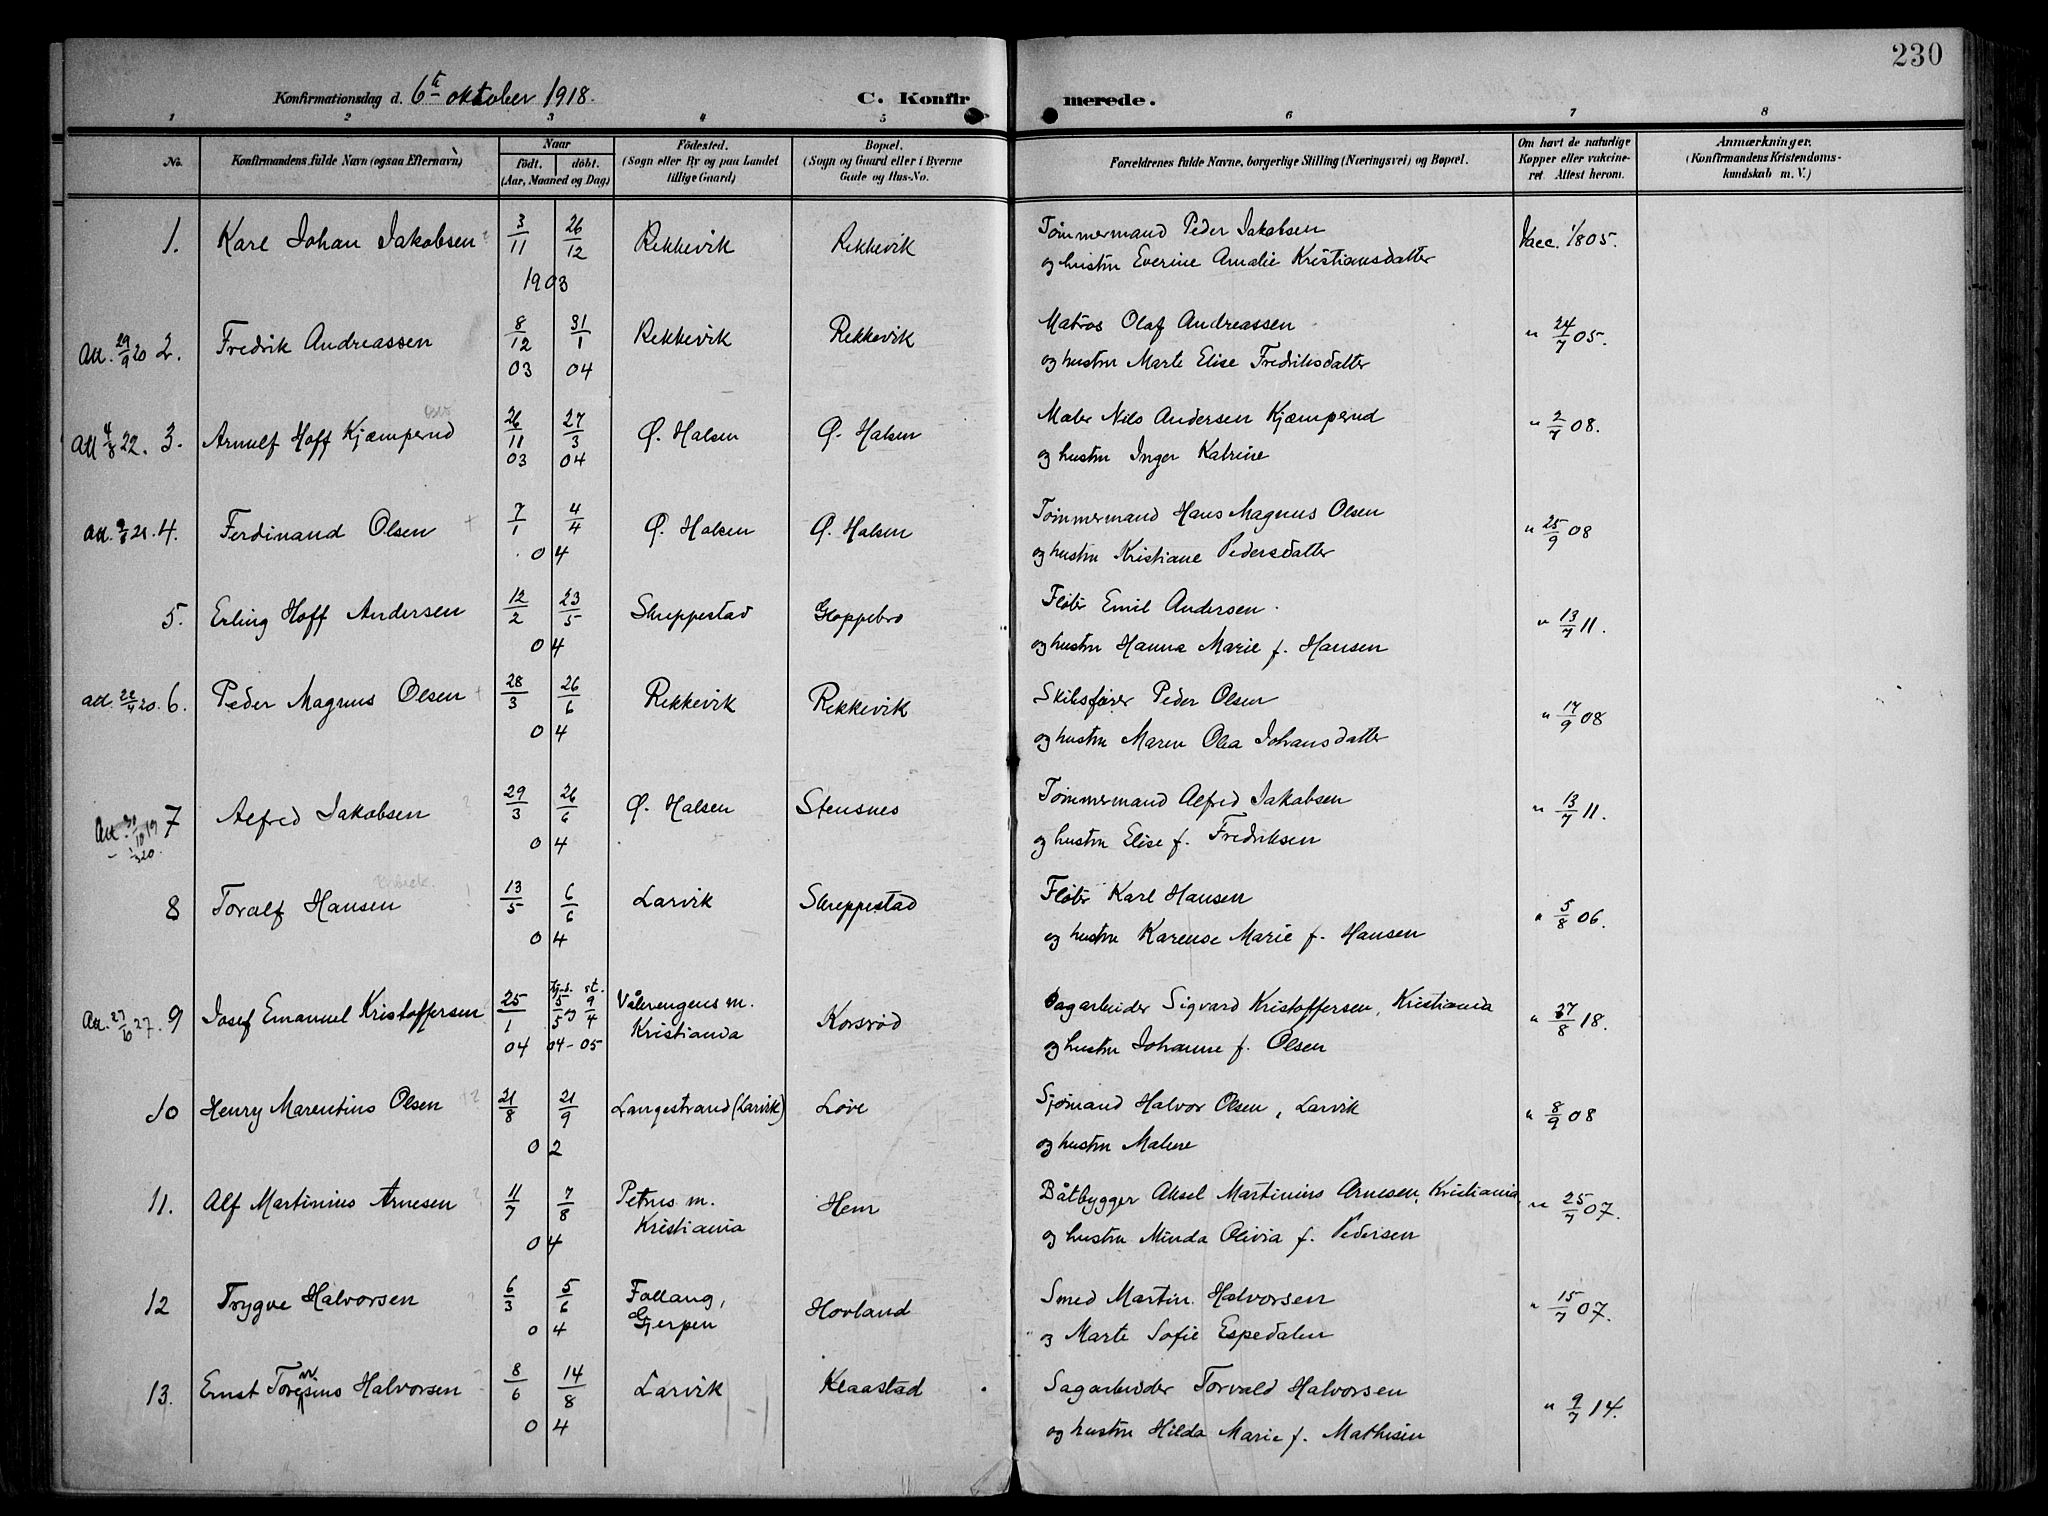 230
Konfirmationsdag d. 6te oktober 1918.
C. Konfirmerede.
1 2 3 4 5 6 7 8
No.
Konfirmandens fulde Navn (ogsaa Efternavn)
Naar
födt. döbt.
(Aar, Maaned og Dag)
Födested.
(Sogn eller By og paa Landet
tillige Gaard)
Bopæl.
(Sogn og Gaard eller i Byerne
Gade og Hus-No.
Forældrenes fulde Navne, borgerlige Stilling (Næringsvei) og Bopæl.
Om havt de naturlige
Kopper eller vakcine-
ret. Attest herom.
Anmærkninger.
(Konfirmandens Kristendoms-
kundskab m. V.)
1. Karl Johan Jakobsen 3/11 26/12 1903 Rekkevik Rekkevik
Tømmermand Peder Jakobsen
og hustru Everine Amalie Kristiansdatter
Vacc. 1/8 05.
Att. 29/9 20 2. Fredrik Andreassen 8/12 03 31/1 04 Rekkevik Rekkevik
Matros Olaf Andreassen
og hustru Marte Elise Fredriksdatter
" 24/7 05.
Att 4/8 22. 3. Arnulf Hoff Kjæmperud 26/11 03 27/3 04 Ø. Halsen Ø. Halsen
Maler Nils Andersen Kjæmperud
og hustru Inger Katrine
" 2/7 08.
Att. 21. 4. Ferdinand Olsen 7/1 4/4 04 Ø. Halsen Ø. Halsen
Tømmermand Hans Magnus Olsen
og hustru Kristiane Pedersdatter
" 25/9 08
5. Erling Hoff Andersen 12/2 23/5 04 Skreppestad Gloppebro
Fløter Emil Andersen.
og hustru Hanna Marie f. Hansen
" 13/7 11.
Att. 20. 6. Peder Magnus Olsen 28/3 26/6 04 Rekkevik Rekkevik
Skibsfører Peder Olsen
og hustru Maren Olea Johansdatter
" 17/9 08
Att 30/10 19 7 Alfred Jakobsen 29/3 26/6 04 Ø. Halsen Stensnes
Tømmermand Alfred Jakobsen
og hustru Elise f. Fredriksen
" 13/7 11.
8 Toralf Hansen 13/5 6/6 04 Larvik Skreppestad
Fløter Karl Hansen
og hustru Karense Marie f. Hansen
" 5/8 06.
Att. 27/10 27. 9 Josef Emanuel Kristoffersen 25/1 04 hj.d. 5/5 og st. 9/4 04-05 Vålerengens m. Kristiania Korsrød
Sagarbeider Sigvard Kristoffersen, Kristiania
og hustru Johanne f. Olsen
" 27/8 18.
10 Henry Marentius Olsen 21/8 21/9 02 Langestrand (Larvik) Løve
Sjømand Halvor Olsen, Larvik
og hustru Malene
" 8/9 08
11. Alf Martinius Arnesen 11/7 7/8 04 Petrus m. Kristiania Hem
Båtbygger Aksel Martinius Arnesen, Kristiania
og hustru Minda Olivia f. Pedersen
" 25/7 07.
12 Trygve Halvorsen 6/3 5/6 04 Follang, Gjerpen Hovland
Smed Martin Halvorsen
og Marte Sofie Espedalen
" 15/7 07.
13. Ernst Halvorsen 8/6 14/8 04 Larvik Klaastad
Sagarbeider Torvald Halvorsen
og hustru Hilda Marie f. Mathisen
" 9/7 14.